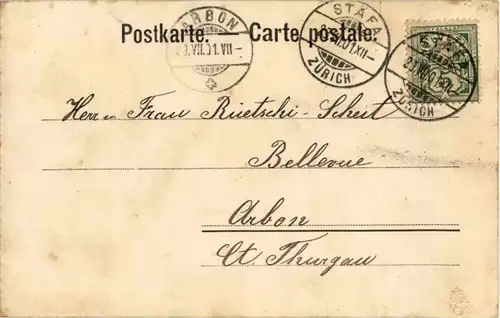 Postkarte. Carte postale.
ARBON
VII.01.VII-
STÄFA
ZÜRICH
STÄFA
ZÜRICH
Herr u Frau Rüetschi-Scheit
Bellevue
Arbon
Ct. Thurgau